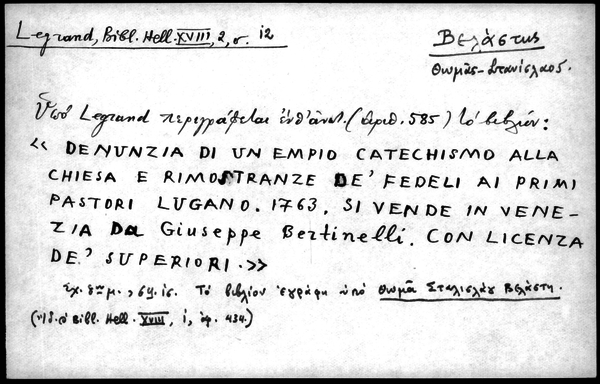 Legrand, Bibl. Hell. XVIII, 2, σ. 12
Βελάστης
Θωμᾶς-Στανίσλαος.
Ὑπὸ Legrand περιγράφεται ἐνθ' ἀνωτ. (ἀριθ. 585) τὸ βιβλίον:
« DENUNZIA DI UN EMPIO CATECHISMO ALLA
CHIESA E RIMOSTRANZE DE' FEDELI AI PRIMI
PASTORI LUGANO. 1763. SI VENDE IN VENE-
ZIA DA Giuseppe Bertinelli. CON LICENZA
DE' SUPERIORI. »
Τὸ βιβλίον ἐγράφη ὑπὸ Θωμᾶ Σταλισλάου Βελάστη.
Bibl. Hell. XVIII, i, ἀρ. 434.)